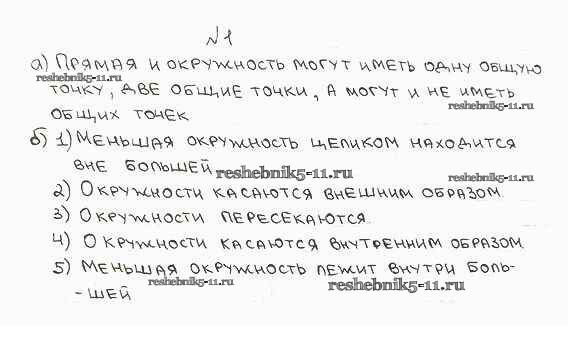 №1
а) Прямая и окружность могут иметь одну общую
reshebnik5-11.ru
точку, две общие точки, а могут и не иметь
reshebnik5-11.ru
общих точек
б) 1) Меньшая окружность целиком находится
вне большей
reshebnik5-11.ru
reshebnik5-11.ru
2) Окружности касаются внешним образом.
3) Окружности пересекаются.
4) Окружности касаются внутренним образом
5) Меньшая окружность лежит внутри боль-
reshebnik5-11.ru
reshebnik5-11.ru
-шей